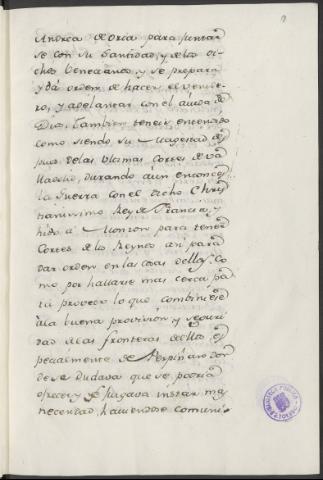 Andrea de Oria para juntar
se con su Santidad, y de los di
chos Venecianos, y se prepara
y da orden de hacer el
y adelantar con el aiuda de
Dios. Tambien teneis entendido
como siendo su Magestad des
pues de las Ultimas Cortes de Va
lladolid, durando aún entonces
la Guerra con el dicho Chris
tianissimo Rey de Francia, y
hido á Monzon para tener
Cortes de los Reynos así para
dar orden en las cosas dellos, Co
mo por hallarse mas cerca pa
ra proveer lo que combiniese
à la buena provision, y seguri
dad de las fronteras dellos, es
pecialmente de Perpiñan don
de se dudava que se podria
ofrecer, y se juzgava instar mas
necesidad, haviendose comuni-